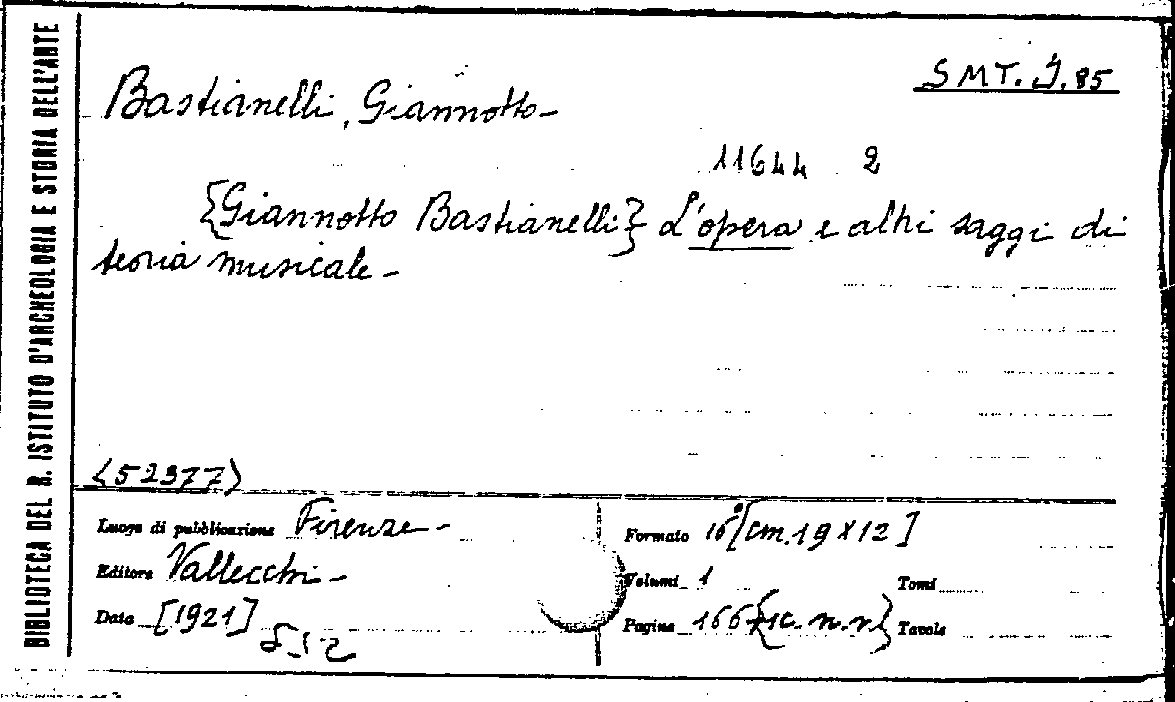 BIBLIOTECA DEL R. ISTITUTO D'ARCHEOLOGIA E STORIA DELL'ARTE
SMT. J. 85
Bastianelli, Giannotto-
11644 2
{Giannotto Bastianelli} L'opera e altri saggi di
teoria musicale-
<52377>
Luogo di pubblicazione Firenze-
Editore Vallecchi-
Data [1921]
Formato 16° [cm. 19 X 12]
Volumi 1 Tomi
Pagine 166 + {1c. n.n.} Tavole